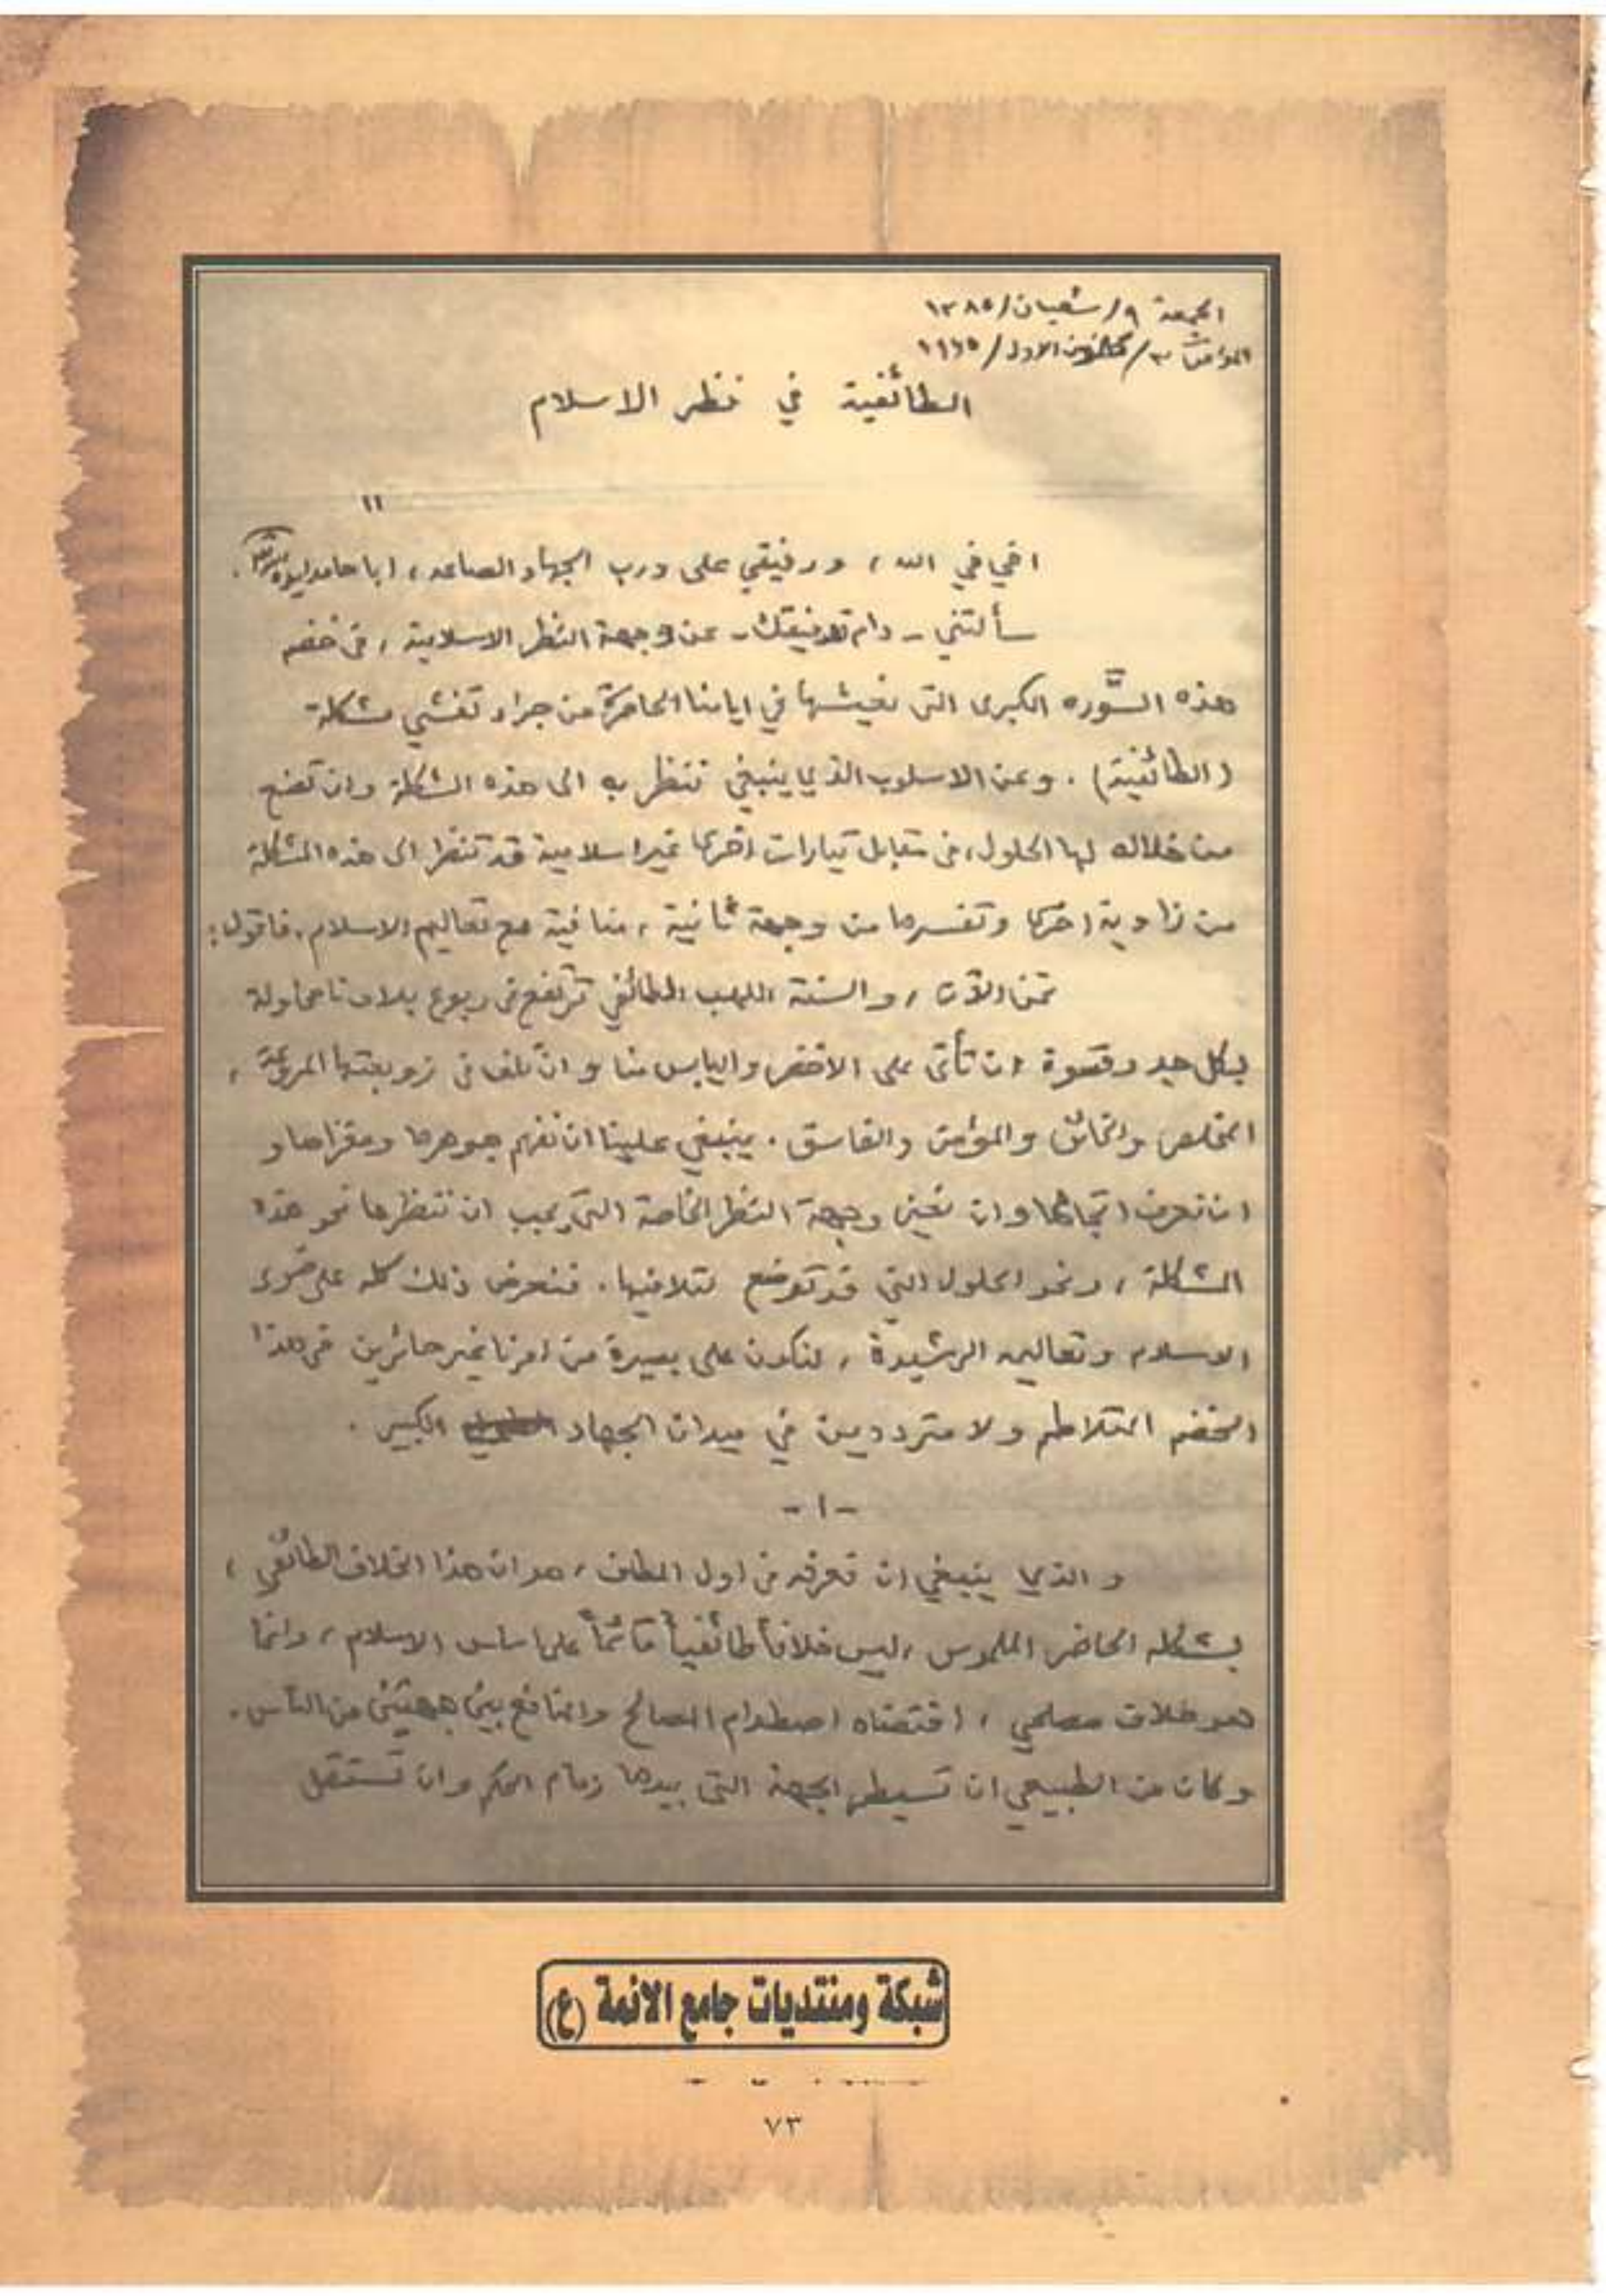 الجمعة ٩/ شعبان/ ١٣٨٥
الموافق ٣/ كانون الاول/ ١٩٦٥
الطائفية في نظر الاسلام
١١
اخي في الله ، ورفيقي على درب الجهاد الصاعد ، ابا حامد
سألتني - دام توفيقك - عن وجهة النظر الاسلامية ، في خضم
هذه الثورة الكبرى التي نعيشها في ايامنا الحاضرة من جراء تفشي مشكلة
(الطائفية) . وعن الاسلوب الذي ينبغي ننظر به الى هذه المشكلة وان نضع
من خلاله لها الحلول، في مقابل تيارات اخرى غير اسلامية قد تنظر الى هذه المشكلة
من زاوية اخرى وتفسرها من وجهة ثانية ، منافية مع تعاليم الاسلام . فاقول :
نحن الآن ، والسنة اللهب الطائفي ترتفع في ربوع بلادنا محاولة
بكل جد وقسوة ان تأتي على الاخضر واليابس منا وان تلف في زوبعتها المروعة ،
المخلص والخائن والمؤمن والفاسق . ينبغي علينا ان نفهم جوهرها ومغزاها و
ان نعرف اتجاهها وان نعين وجهة النظر الخاصة التي يجب ان ننظرها نحو هذه
المشكلة ، ونحو الحلول التي قد توضع لتلافيها . فنعرض ذلك كله على ضوء
الاسلام وتعاليمه الرشيدة ، لنكون على بصيرة من امرنا غير حائرين في هذا
الخضم المتلاطم ولا مترددين في ميدان الجهاد الكبير .
- ١ -
والذي ينبغي ان نعرفه في اول المطاف ، هو ان هذا الخلاف الطائفي ،
بشكله الحاضر الملموس ، ليس خلافاً طائفياً قائماً على اساس الاسلام ، وانما
هو خلاف مصلحي ، اقتضاه اصطدام المصالح والمنافع بين جهتين من الناس .
وكان من الطبيعي ان تسيطر الجهة التي بيدها زمام الحكم وان تستقل
شبكة ومنتديات جامع الائمة (ع)
٧٣